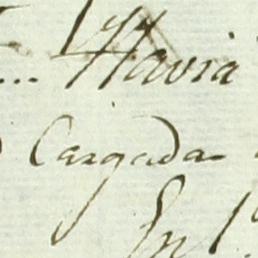 ... Havia
Cargada
En 1